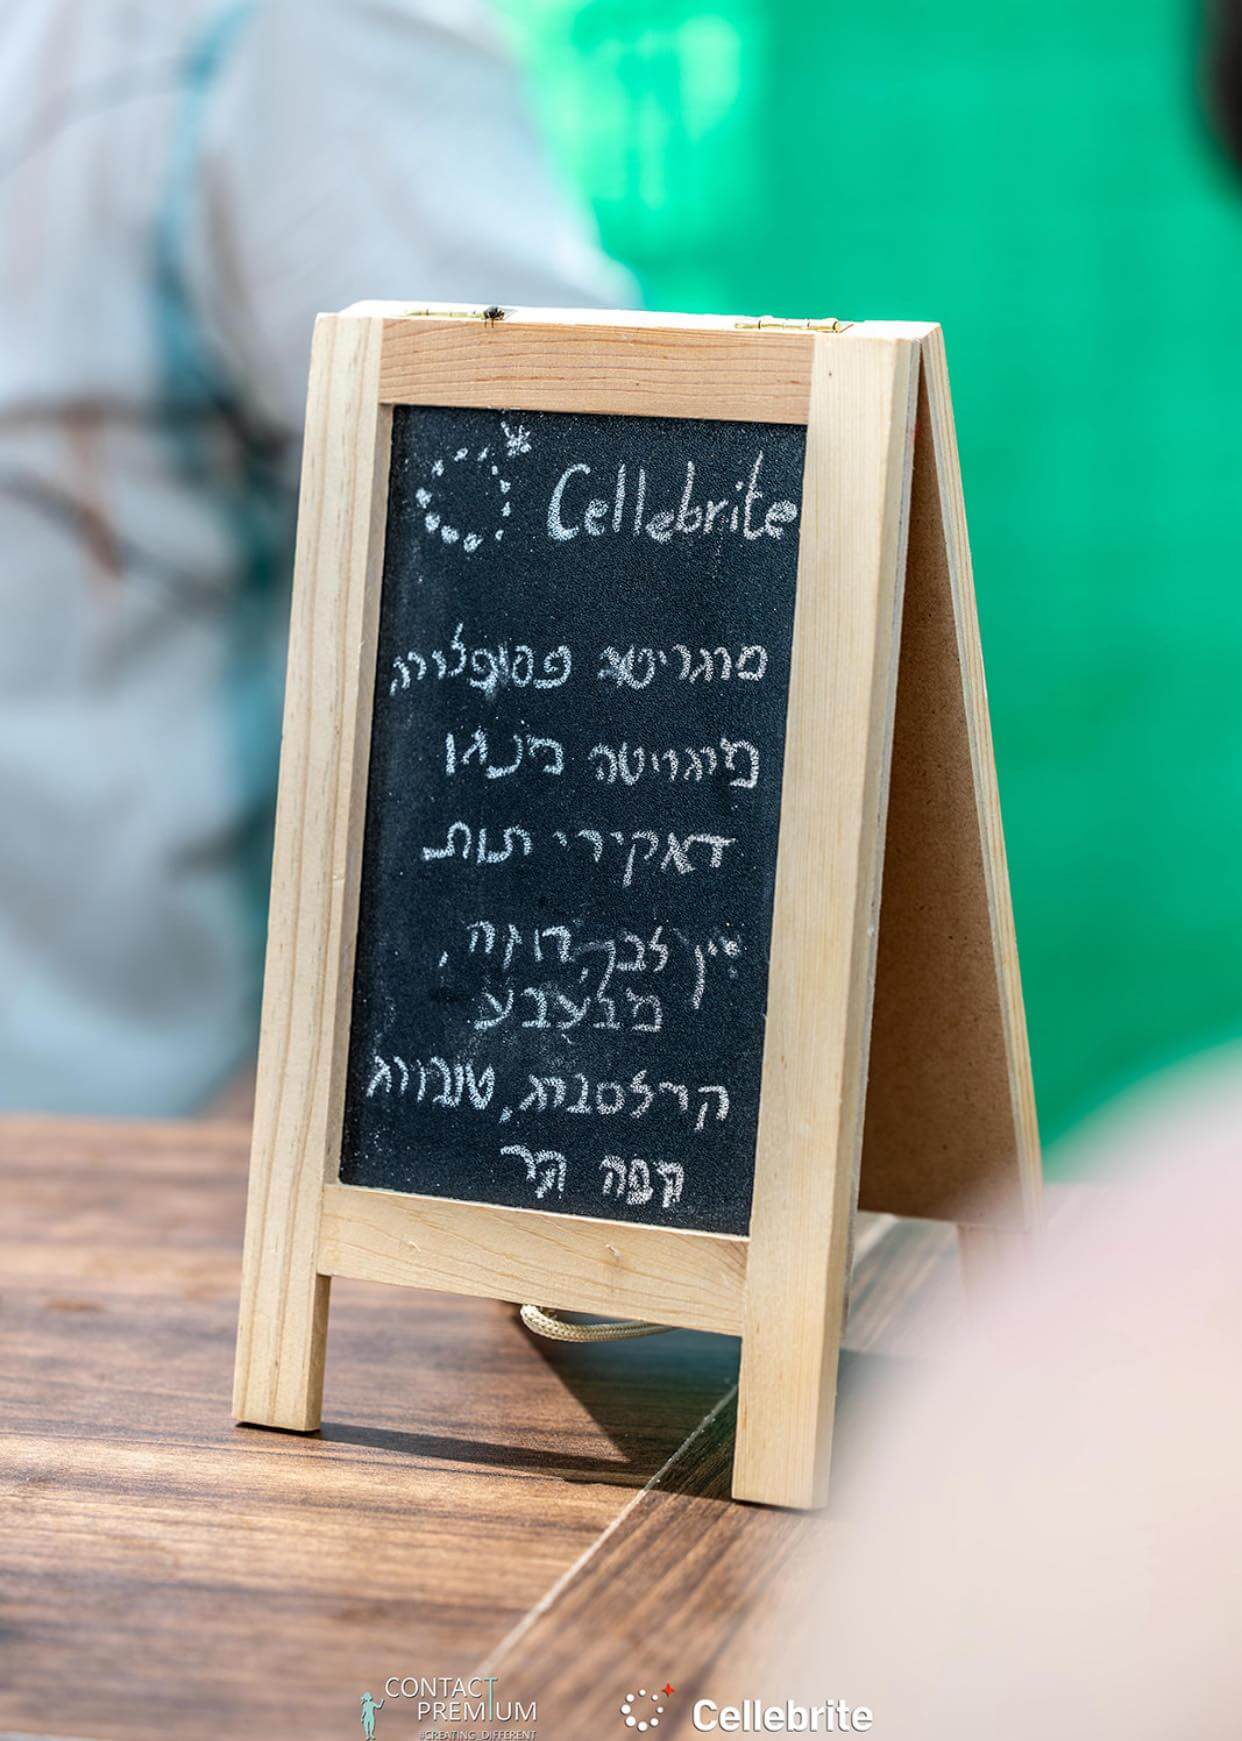 Cellebrite
מרגריטה פסיפלורה
מרגריטה מנגו
דאקירי תות
יין לבן, רוזה,
מבעבע
קרלסברג, טובורג
קפה קר
CONTACT
PREMIUM
#CREATING_DIFFERENT
Cellebrite